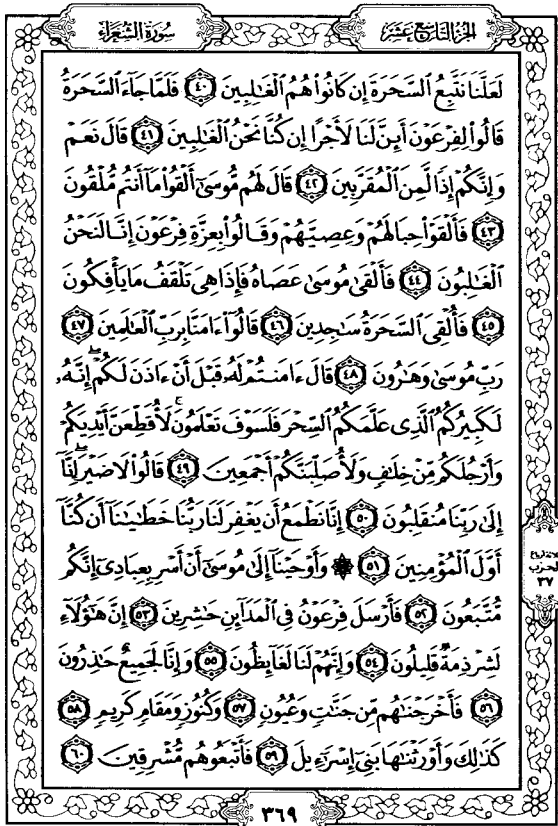 سُورَةُ الشُّعَرَاءِ
الجُزْءُ التَّاسِعُ عَشَرَ
لَعَلَّنَا نَتَّبِعُ السَّحَرَةَ إِن كَانُوا۟ هُمُ ٱلْغَٰلِبِينَ ٤٠ فَلَمَّا جَآءَ ٱلسَّحَرَةُ
قَالُوا۟ لِفِرْعَوْنَ أَئِنَّ لَنَا لَأَجْرًا إِن كُنَّا نَحْنُ ٱلْغَٰلِبِينَ ٤١ قَالَ نَعَمْ
وَإِنَّكُمْ إِذًا لَّمِنَ ٱلْمُقَرَّبِينَ ٤٢ قَالَ لَهُم مُّوسَىٰٓ أَلْقُوا۟ مَآ أَنتُم مُّلْقُونَ
٤٣ فَأَلْقَوْا۟ حِبَالَهُمْ وَعِصِيَّهُمْ وَقَالُوا۟ بِعِزَّةِ فِرْعَوْنَ إِنَّا لَنَحْنُ
ٱلْغَٰلِبُونَ ٤٤ فَأَلْقَىٰ مُوسَىٰ عَصَاهُ فَإِذَا هِىَ تَلْقَفُ مَا يَأْفِكُونَ
٤٥ فَأُلْقِىَ ٱلسَّحَرَةُ سَٰجِدِينَ ٤٦ قَالُوٓا۟ ءَامَنَّا بِرَبِّ ٱلْعَٰلَمِينَ ٤٧
رَبِّ مُوسَىٰ وَهَٰرُونَ ٤٨ قَالَ ءَامَنتُمْ لَهُۥ قَبْلَ أَنْ ءَاذَنَ لَكُمْ ۖ إِنَّهُۥ
لَكَبِيرُكُمُ ٱلَّذِى عَلَّمَكُمُ ٱلسِّحْرَ فَلَسَوْفَ تَعْلَمُونَ ۚ لَأُقَطِّعَنَّ أَيْدِيَكُمْ
وَأَرْجُلَكُم مِّنْ خِلَٰفٍ وَلَأُصَلِّبَنَّكُمْ أَجْمَعِينَ ٤٩ قَالُوا۟ لَا ضَيْرَ ۖ إِنَّآ
إِلَىٰ رَبِّنَا مُنقَلِبُونَ ٥٠ إِنَّا نَطْمَعُ أَن يَغْفِرَ لَنَا رَبُّنَا خَطَٰيَٰنَآ أَن كُنَّآ
أَوَّلَ ٱلْمُؤْمِنِينَ ٥١ ۞ وَأَوْحَيْنَآ إِلَىٰ مُوسَىٰٓ أَنْ أَسْرِ بِعِبَادِىٓ إِنَّكُم
مُّتَّبَعُونَ ٥٢ فَأَرْسَلَ فِرْعَوْنُ فِى ٱلْمَدَآئِنِ حَٰشِرِينَ ٥٣ إِنَّ هَٰٓؤُلَآءِ
لَشِرْذِمَةٌ قَلِيلُونَ ٥٤ وَإِنَّهُمْ لَنَا لَغَآئِظُونَ ٥٥ وَإِنَّا لَجَمِيعٌ حَٰذِرُونَ
٥٦ فَأَخْرَجْنَٰهُم مِّن جَنَّٰتٍ وَعُيُونٍ ٥٧ وَكُنُوزٍ وَمَقَامٍ كَرِيمٍ ٥٨
كَذَٰلِكَ وَأَوْرَثْنَٰهَا بَنِىٓ إِسْرَٰٓءِيلَ ٥٩ فَأَتْبَعُوهُم مُّشْرِقِينَ ٦٠
الحزب
٣٧
٣٦٩